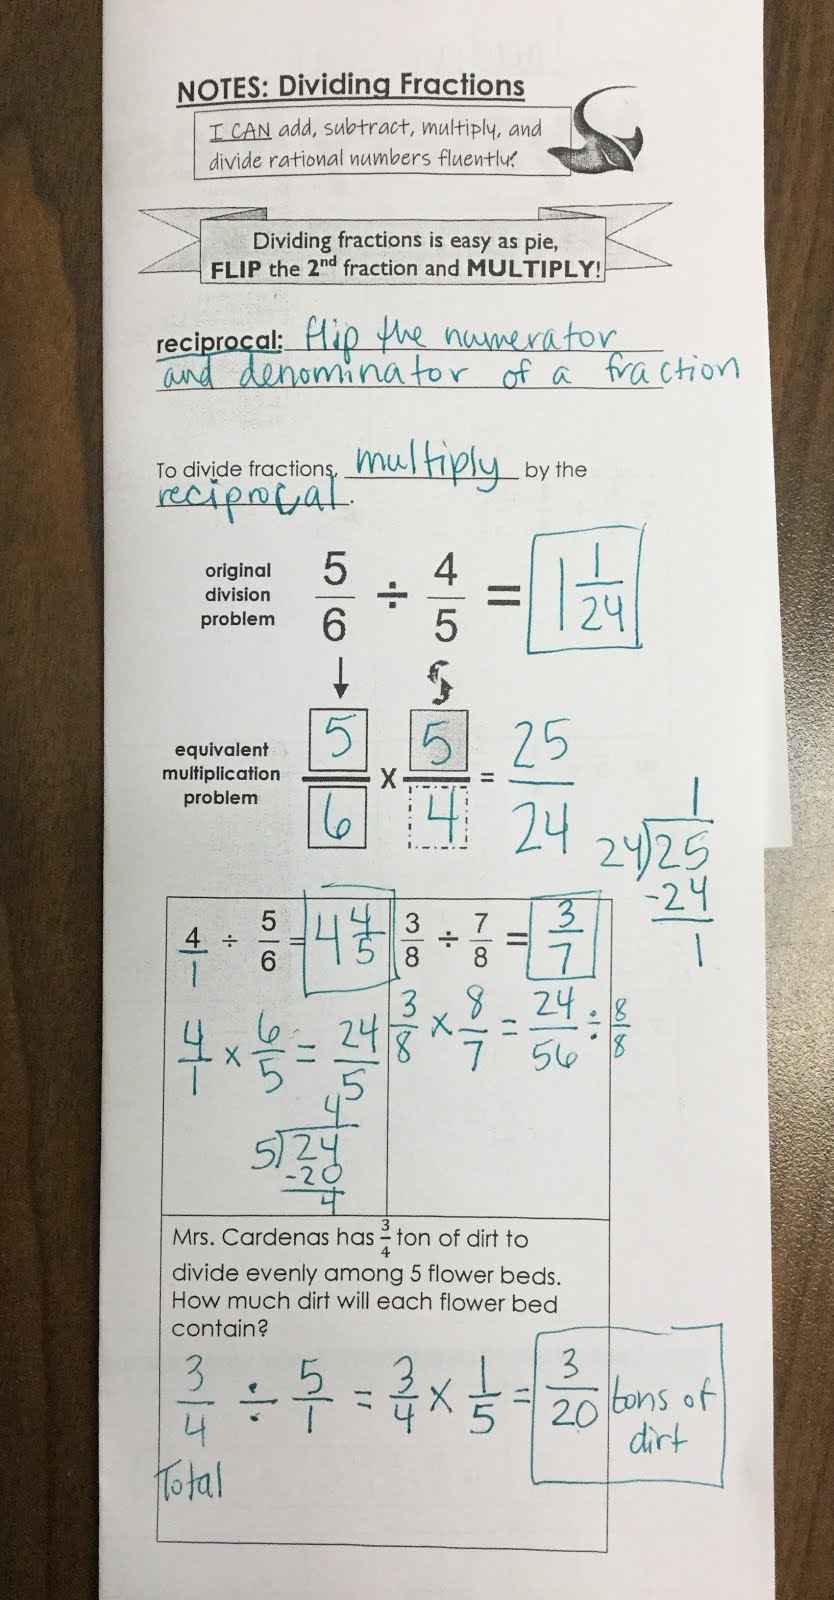 NOTES: Dividing Fractions
I CAN add, subtract, multiply, and
divide rational numbers fluently!
Dividing fractions is easy as pie,
FLIP the 2nd fraction and MULTIPLY!
reciprocal: flip the numerator
and denominator of a fraction
To divide fractions, multiply by the
reciprocal.
original
division
problem
5/6 ÷ 4/5 = 1 1/24
equivalent
multiplication
problem
5/6 x 5/4 = 25/24
1
24)25
-24
1
4/1 ÷ 5/6 = 4 4/5
4/1 x 6/5 = 24/5
4
5)24
-20
4
3/8 ÷ 7/8 = 3/7
3/8 x 8/7 = 24/56 ÷ 8/8
Mrs. Cardenas has 3/4 ton of dirt to
divide evenly among 5 flower beds.
How much dirt will each flower bed
contain?
3/4 ÷ 5/1 = 3/4 x 1/5 = 3/20 tons of
dirt
Total